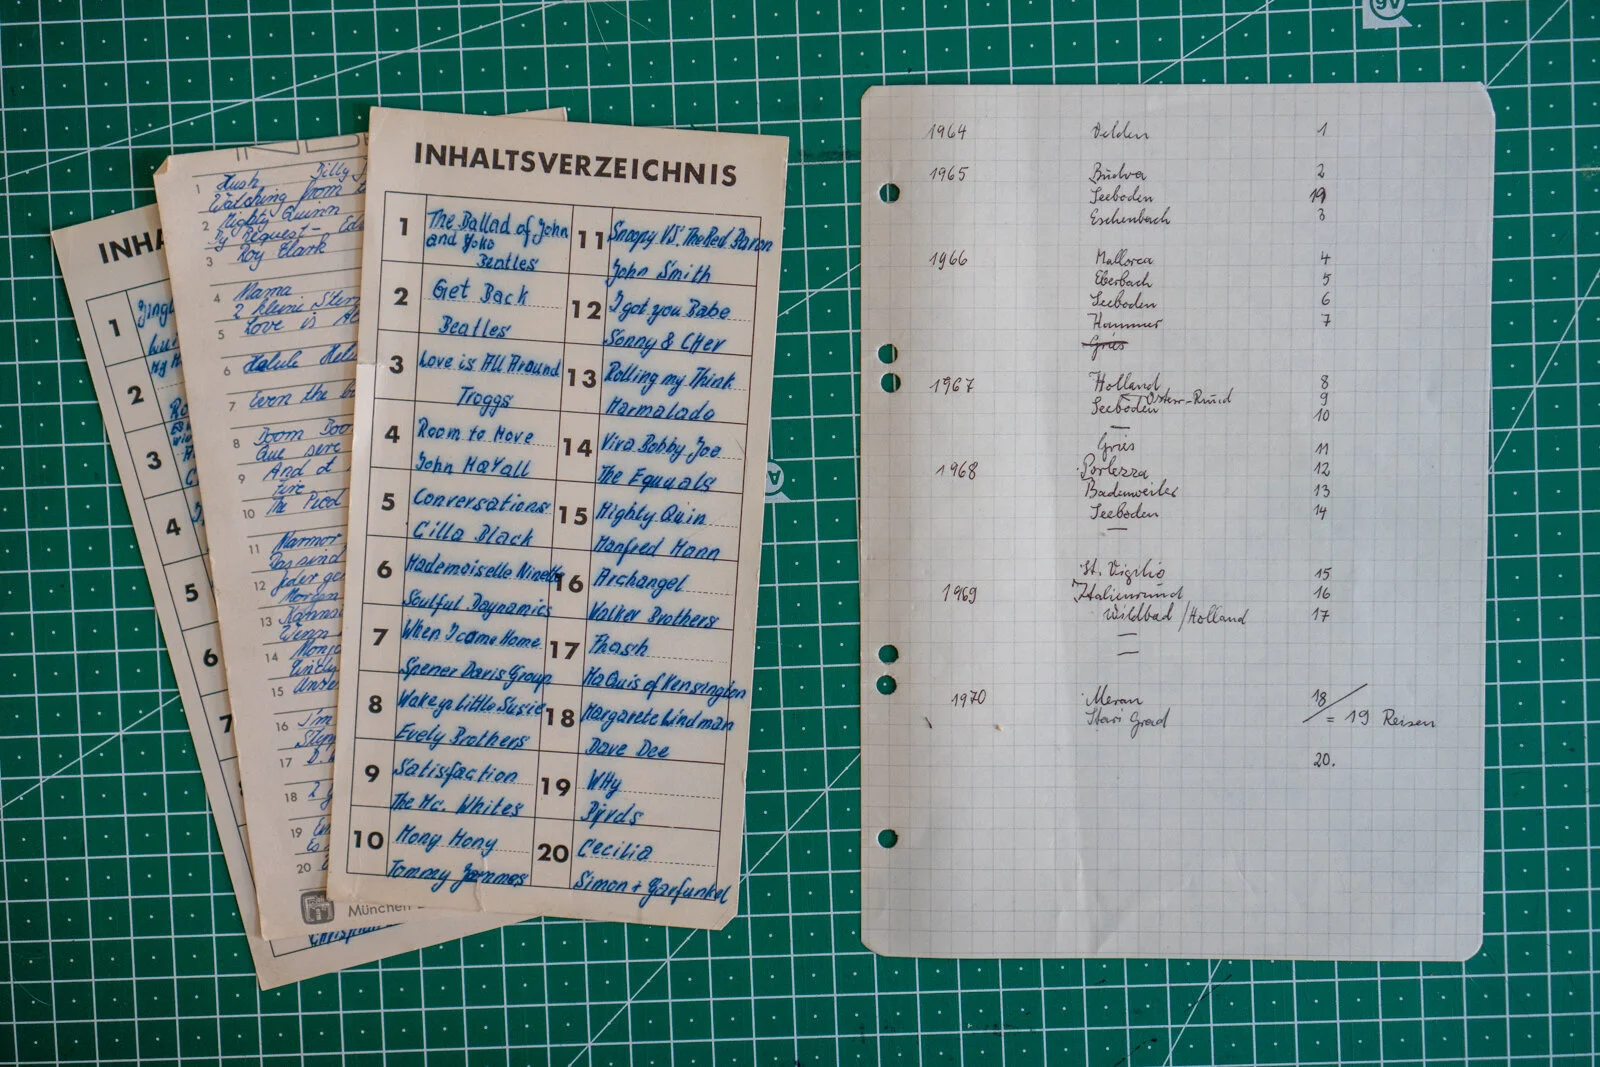 INHA
1
2
3
4
5
6
7
1 Hush Billy
Watching from
2 Mighty Quinn
By Request - Ed
3 Roy Clark
4 Mama
2 kleine
5 Love is
6
7
8
Que sera
9 And
10 The
11 Marmor
Das sind
12
Morgen
13
14
15
16 I'm
17
18
19
20
München
INHALTSVERZEICHNIS
1 The Ballad of John
and Yoko
Beatles
2 Get Back
Beatles
3 Love is All Around
Troggs
4 Room to Move
John Mayall
5 Conversations
Cilla Black
6 Mademoiselle Ninette
Soulful Daynamics
7 When I came Home
Spener Davis Group
8 Wakeup Little Susie
Evely Brothers
9 Satisfaction
The Mc. Whites
10 Mony Mony
Tommy Jammes
11 Snoopy VS. The Red Baron
John Smith
12 I got you Babe
Sonny & CHer
13 Rolling my Think
Marmalado
14 Viva Bobby Joe
The Equals
15 Mighty Quin
Manfred Mann
16 Archangel
Walker Brothers
17 Flash
MaQuis of Kensington
18 Margarete Lindman
Dave Dee
19 WHy
Byrds
20 Cecilia
Simon + Garfunkel
1964 Velden 1
1965 Budva 2
Seeboden 19
Eschenbach 3
1966 Mallorca 4
Eberbach 5
Seeboden 6
Hammer 7
Gries
1967 Holland 8
Österr-Rund 9
Seeboden 10
Gries 11
1968 Porlezza 12
Badenweiler 13
Seeboden 14
St. Vigilio 15
1969 Italienrund 16
Wildbad / Holland 17
1970 Meran 18
Stari Grad = 19 Reisen
20.